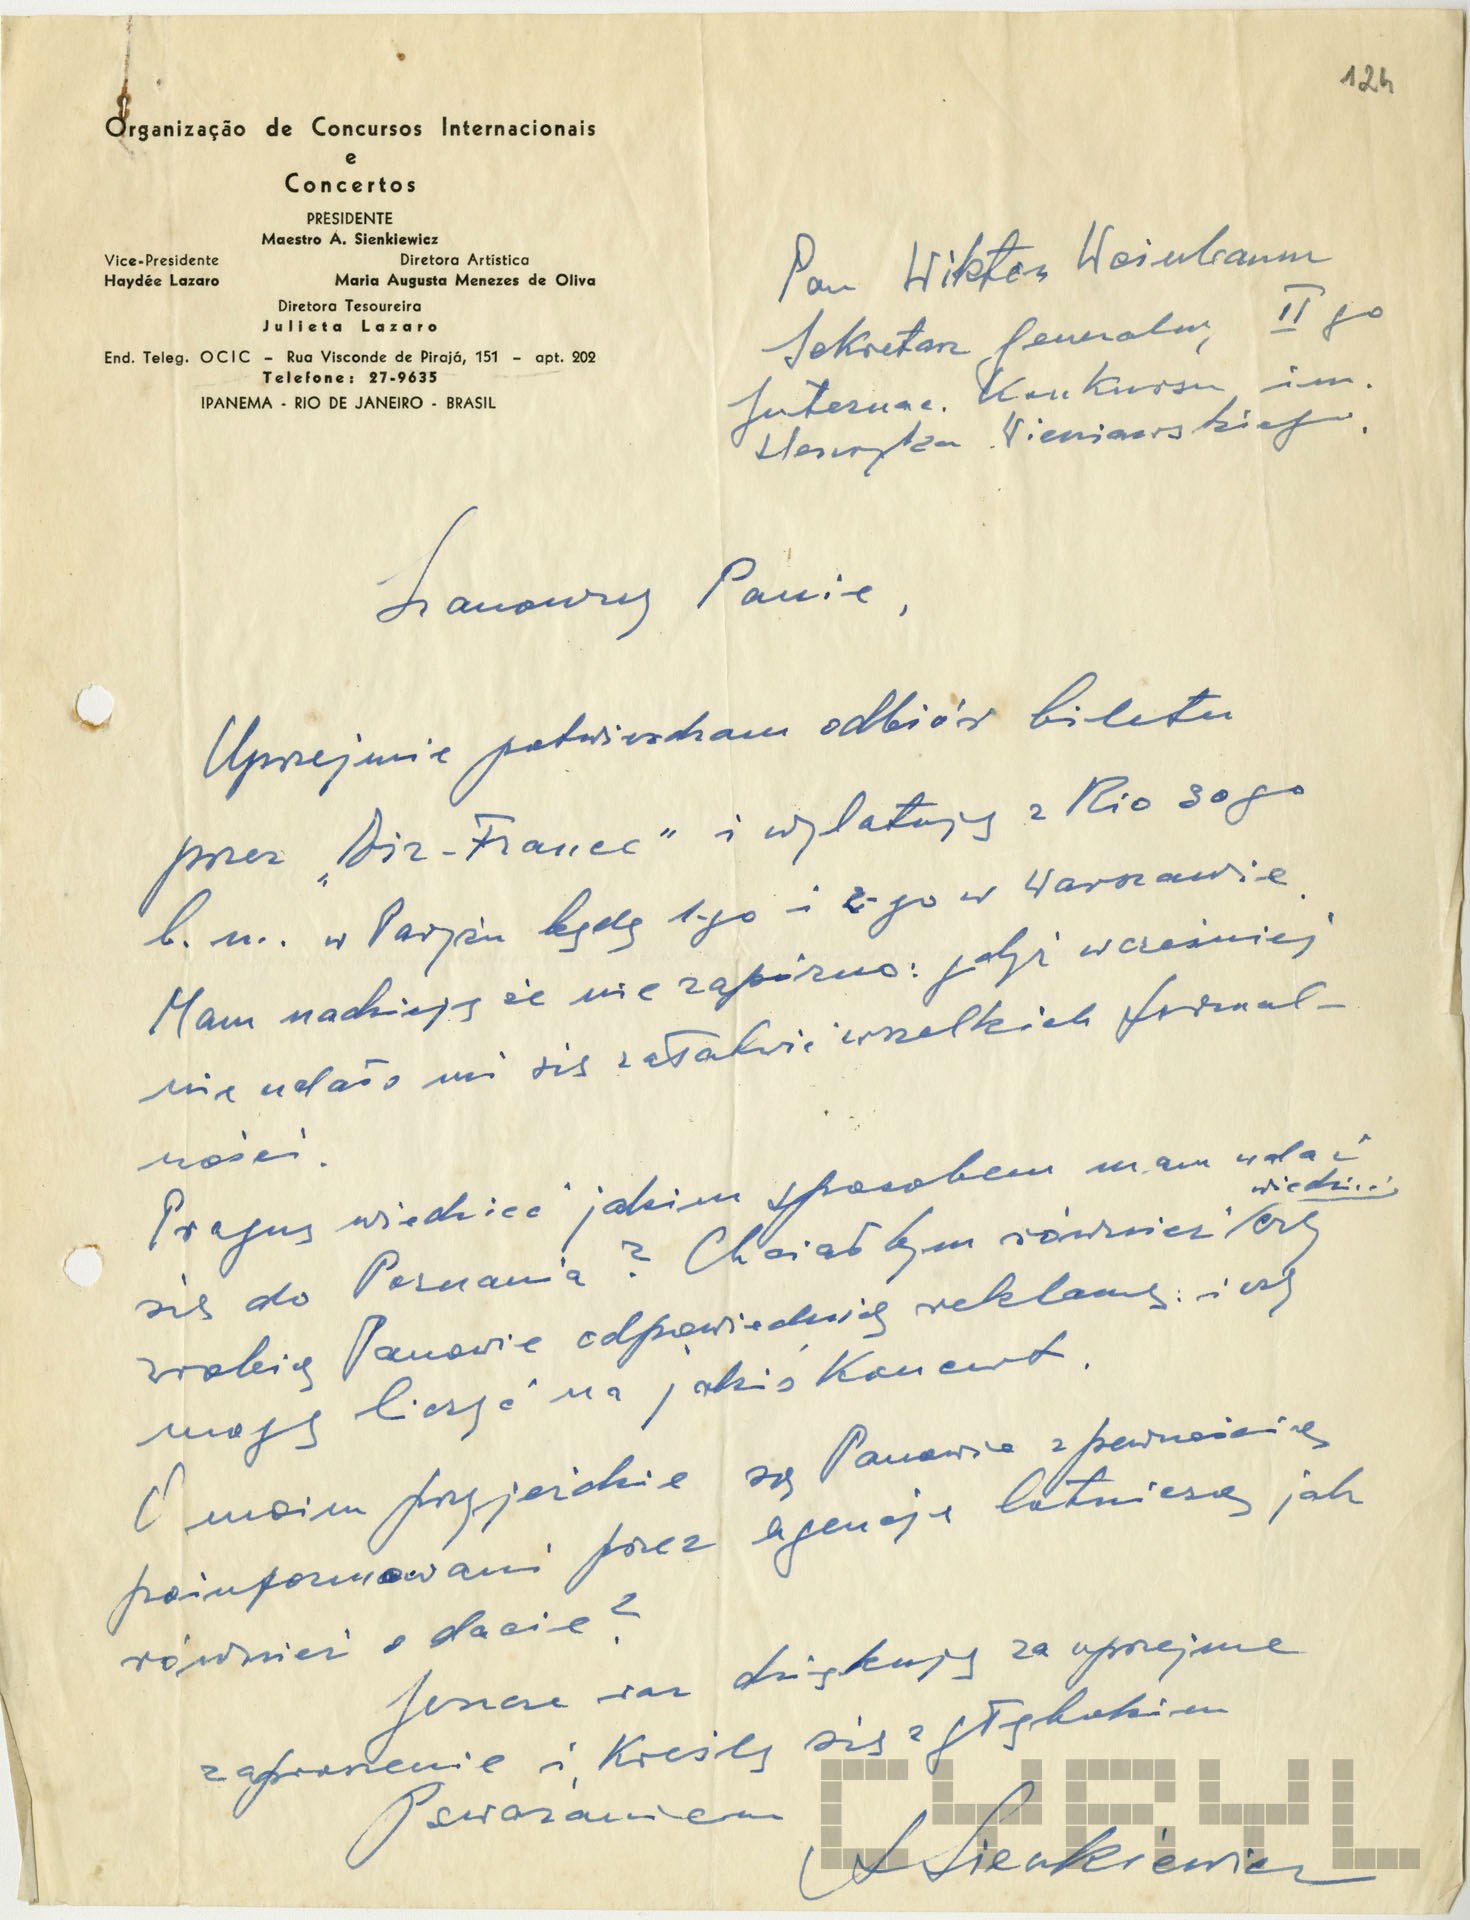 124
Organização de Concursos Internacionais
e
Concertos
PRESIDENTE
Maestro A. Sienkiewicz
Vice-Presidente Diretora Artística
Haydée Lazaro Maria Augusta Menezes de Oliva
Diretora Tesoureira
Julieta Lazaro
End. Teleg. OCIC – Rua Visconde de Pirajá, 151 – apt. 202
Telefone: 27-9635
IPANEMA - RIO DE JANEIRO - BRASIL
Pan Wiktor Weinbaum
Sekretarz Generalny, II go
Internac. Konkursu im.
Henryka Wieniawskiego.
Szanowny Panie,
Uprzejmie potwierdzam odbiór biletu
przez "Air-France" i wylatuję z Rio 30go
b. m. w Paryżu będę 1-go i 2-go w Warszawie.
Mam nadzieję że nie zapóźno: gdyż wcześniej
nie udało mi się załatwić wszelkich formal-
ności.
Pragnę wiedzieć jakim sposobem mam udać
wiedzieć
się do Poznania? Chciałbym również czy
zrobią Panowie odpowiednią reklamę: i czy
mogę liczyć na jakiś Koncert.
O moim przyjeździe są Panowie z pewnością
poinformowani przez agencje lotniczą jak
również o dacie?
Jeszcze raz dziękuję za uprzejme
zaproszenie i Kreślę się z głębokim
Poważaniem
A Sienkiewicz
CYRYL